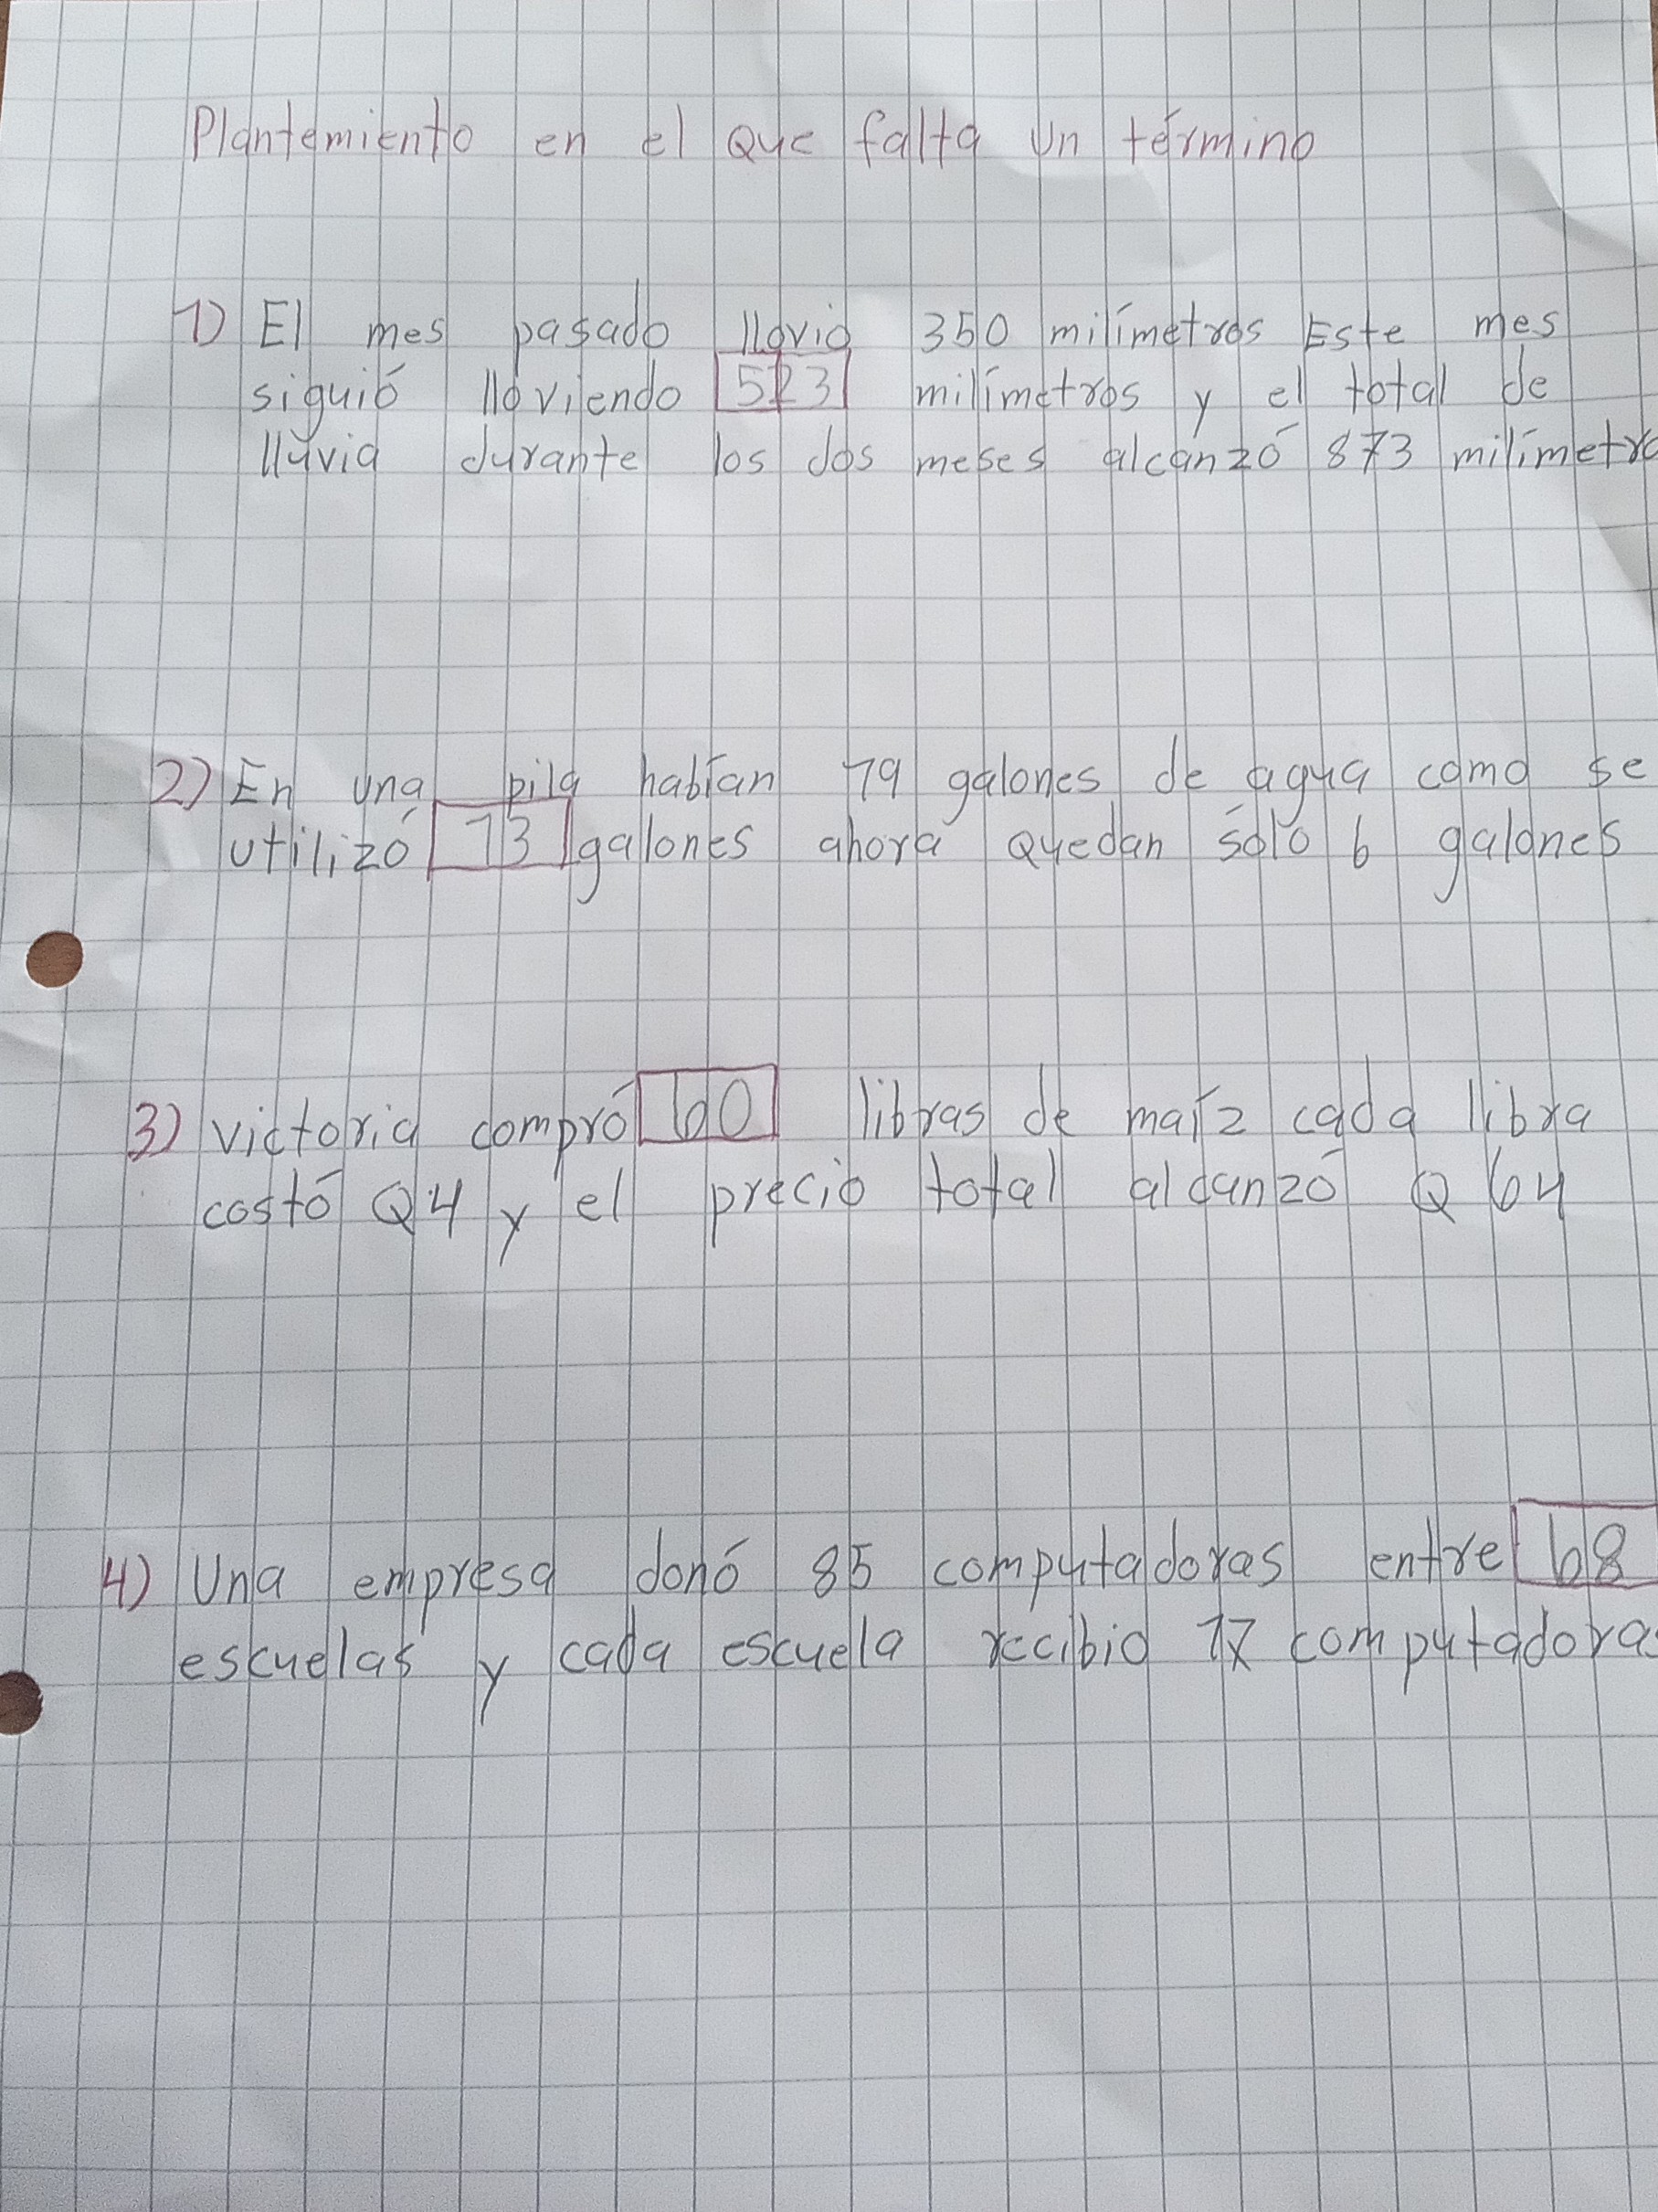 Plantemiento en el Que falta Un término
1) El mes pasado llovio 350 milímetros Este mes
siguió lloviendo 523 milímetros y el total de
lluvia durante los dos meses alcanzó 873 milímetro
2) En una pila habían 79 galones de agua como se
utilizó 73 galones ahora Quedan sólo 6 galones
3) victoria compró 60 libras de maíz cada libra
costó Q4 y el precio total alcanzó Q 64
4) Una empresa donó 85 computadoras entre 68
escuelas y cada escuela recibio 17 computadoras